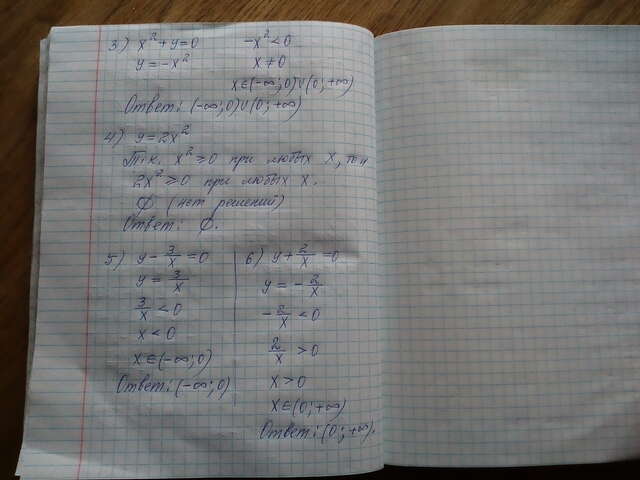 3) x²+y=0   -x²<0
y=-x²   x≠0
x∈(-∞;0)∪(0;+∞)
Ответ: (-∞;0)∪(0;+∞)
4) y=2x²
Т.к. x²≥0 при любых x, то и
2x²≥0 при любых x.
∅ (нет решений)
Ответ: ∅.
5) y-3/x=0
y=3/x
3/x<0
x<0
x∈(-∞;0)
Ответ: (-∞;0)
6) y+2/x=0
y=-2/x
-2/x<0
2/x>0
x>0
x∈(0;+∞)
Ответ: (0;+∞).